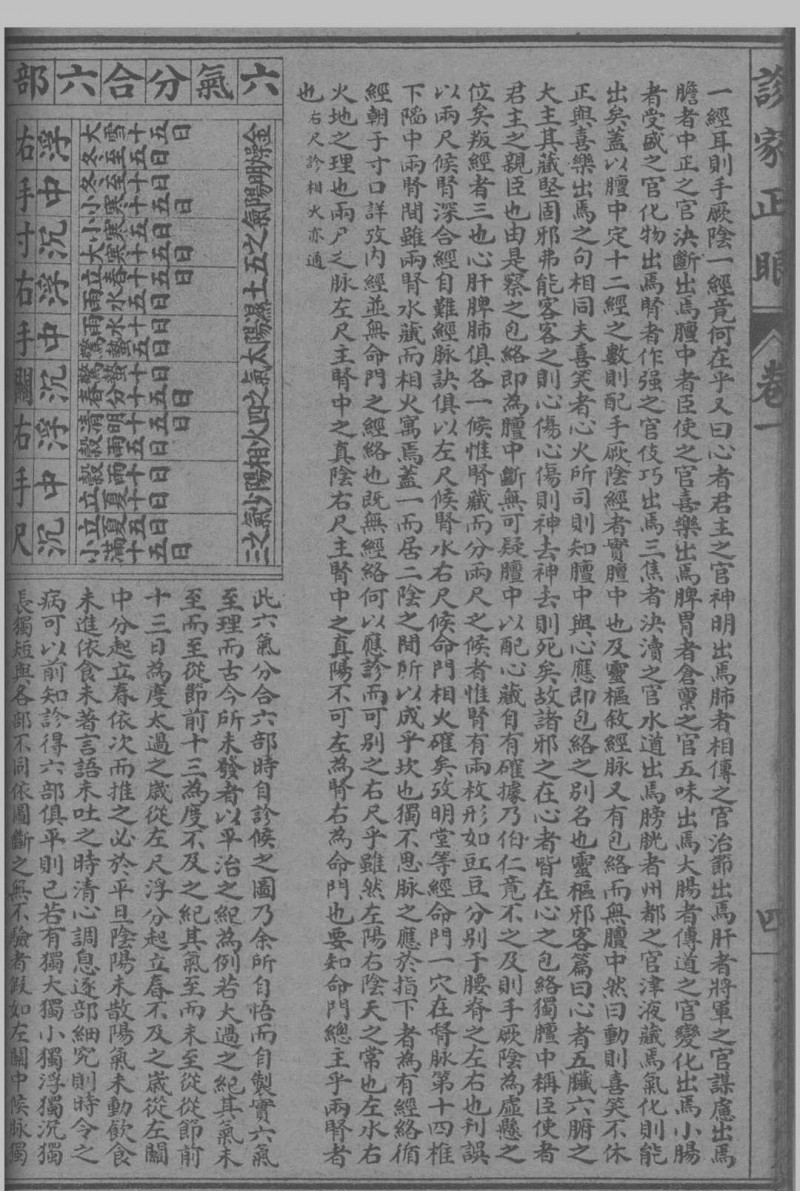 診家正眼 卷一 四
一經耳則手厥陰一經竟何在乎又曰心者君主之官神明出焉肺者相傅之官治節出焉肝者將軍之官謀慮出焉
膽者中正之官決斷出焉膻中者臣使之官喜樂出焉脾胃者倉稟之官五味出焉大腸者傳道之官變化出焉小腸
者受盛之官化物出焉腎者作强之官伎巧出焉三焦者決瀆之官水道出焉膀胱者州都之官津液藏焉氣化則能
出矣蓋以膻中定十二經之數則配手厥陰經者實膻中也及靈樞敘經脉又有包絡而無膻中然曰動則喜笑不休
正與喜樂出焉之句相同夫喜笑者心火所司則知膻中與心應即包絡之別名也靈樞邪客篇曰心者五臟六腑之
大主其藏堅固邪弗能客客之則心傷心傷則神去神去則死矣故諸邪之在心者皆在心之包絡獨膻中稱臣使者
君主之親臣也由是察之包絡即為膻中斷無可疑膻中以配心藏自有確據乃伯仁竟不之及則手厥陰為虛懸之
位矣叛經者三也心肝脾肺俱各一候惟腎藏而分兩尺之候者惟腎有兩枚形如豇豆分別于腰脊之左右也刋誤
以兩尺候腎深合經自難經脉訣俱以左尺候腎水右尺候命門相火確矣攷明堂等經命門一穴在督脉第十四椎
下陷中兩腎間雖兩腎水藏而相火寓焉蓋一而居二陰之間所以成乎坎也獨不思脉之應於指下者為有經絡循
經朝于寸口詳攷内經並無命門之經絡也既無經絡何以應診而可別之右尺乎雖然左陽右陰天之常也左水右
火地之理也兩尸之脉左尺主腎中之真陰右尺主腎中之真陽不可左為腎右為命門也要知命門總主乎兩腎者
也右尺診相火亦通
六氣分合六部
金燥明陽氣之五土濕陽太氣之四火相陽少氣之三
大雪十五日冬至十五日
冬至十五日小寒十日
小寒五日大寒十五日
立春十五日雨水十五日
雨水十五日驚蟄十五日
驚蟄十五日春分十五日
清明十五日穀雨十五日
穀雨十日立夏十日
立夏五日小滿十五日
浮中沉浮中沉浮中沉
右手寸右手關右手尺
此六氣分合六部時自診候之圖乃余所自悟而自製實六氣
至理而古今所未發者以平治之紀為例若大過之紀其氣未
至而至從節前十三為度不及之紀其氣至而未至從從節前
十三日為度太過之歲從左尺浮分起立春不及之歲從左關
中分起立春依次而推之必於平旦陰陽未散陽氣未動飲食
未進依食未著言語未吐之時清心調息逐部細究則時令之
病可以前知診得六部俱平則已若有獨大獨小獨浮獨沉獨
長獨短與各部不同依圖斷之無不驗者假如左關中候脉獨